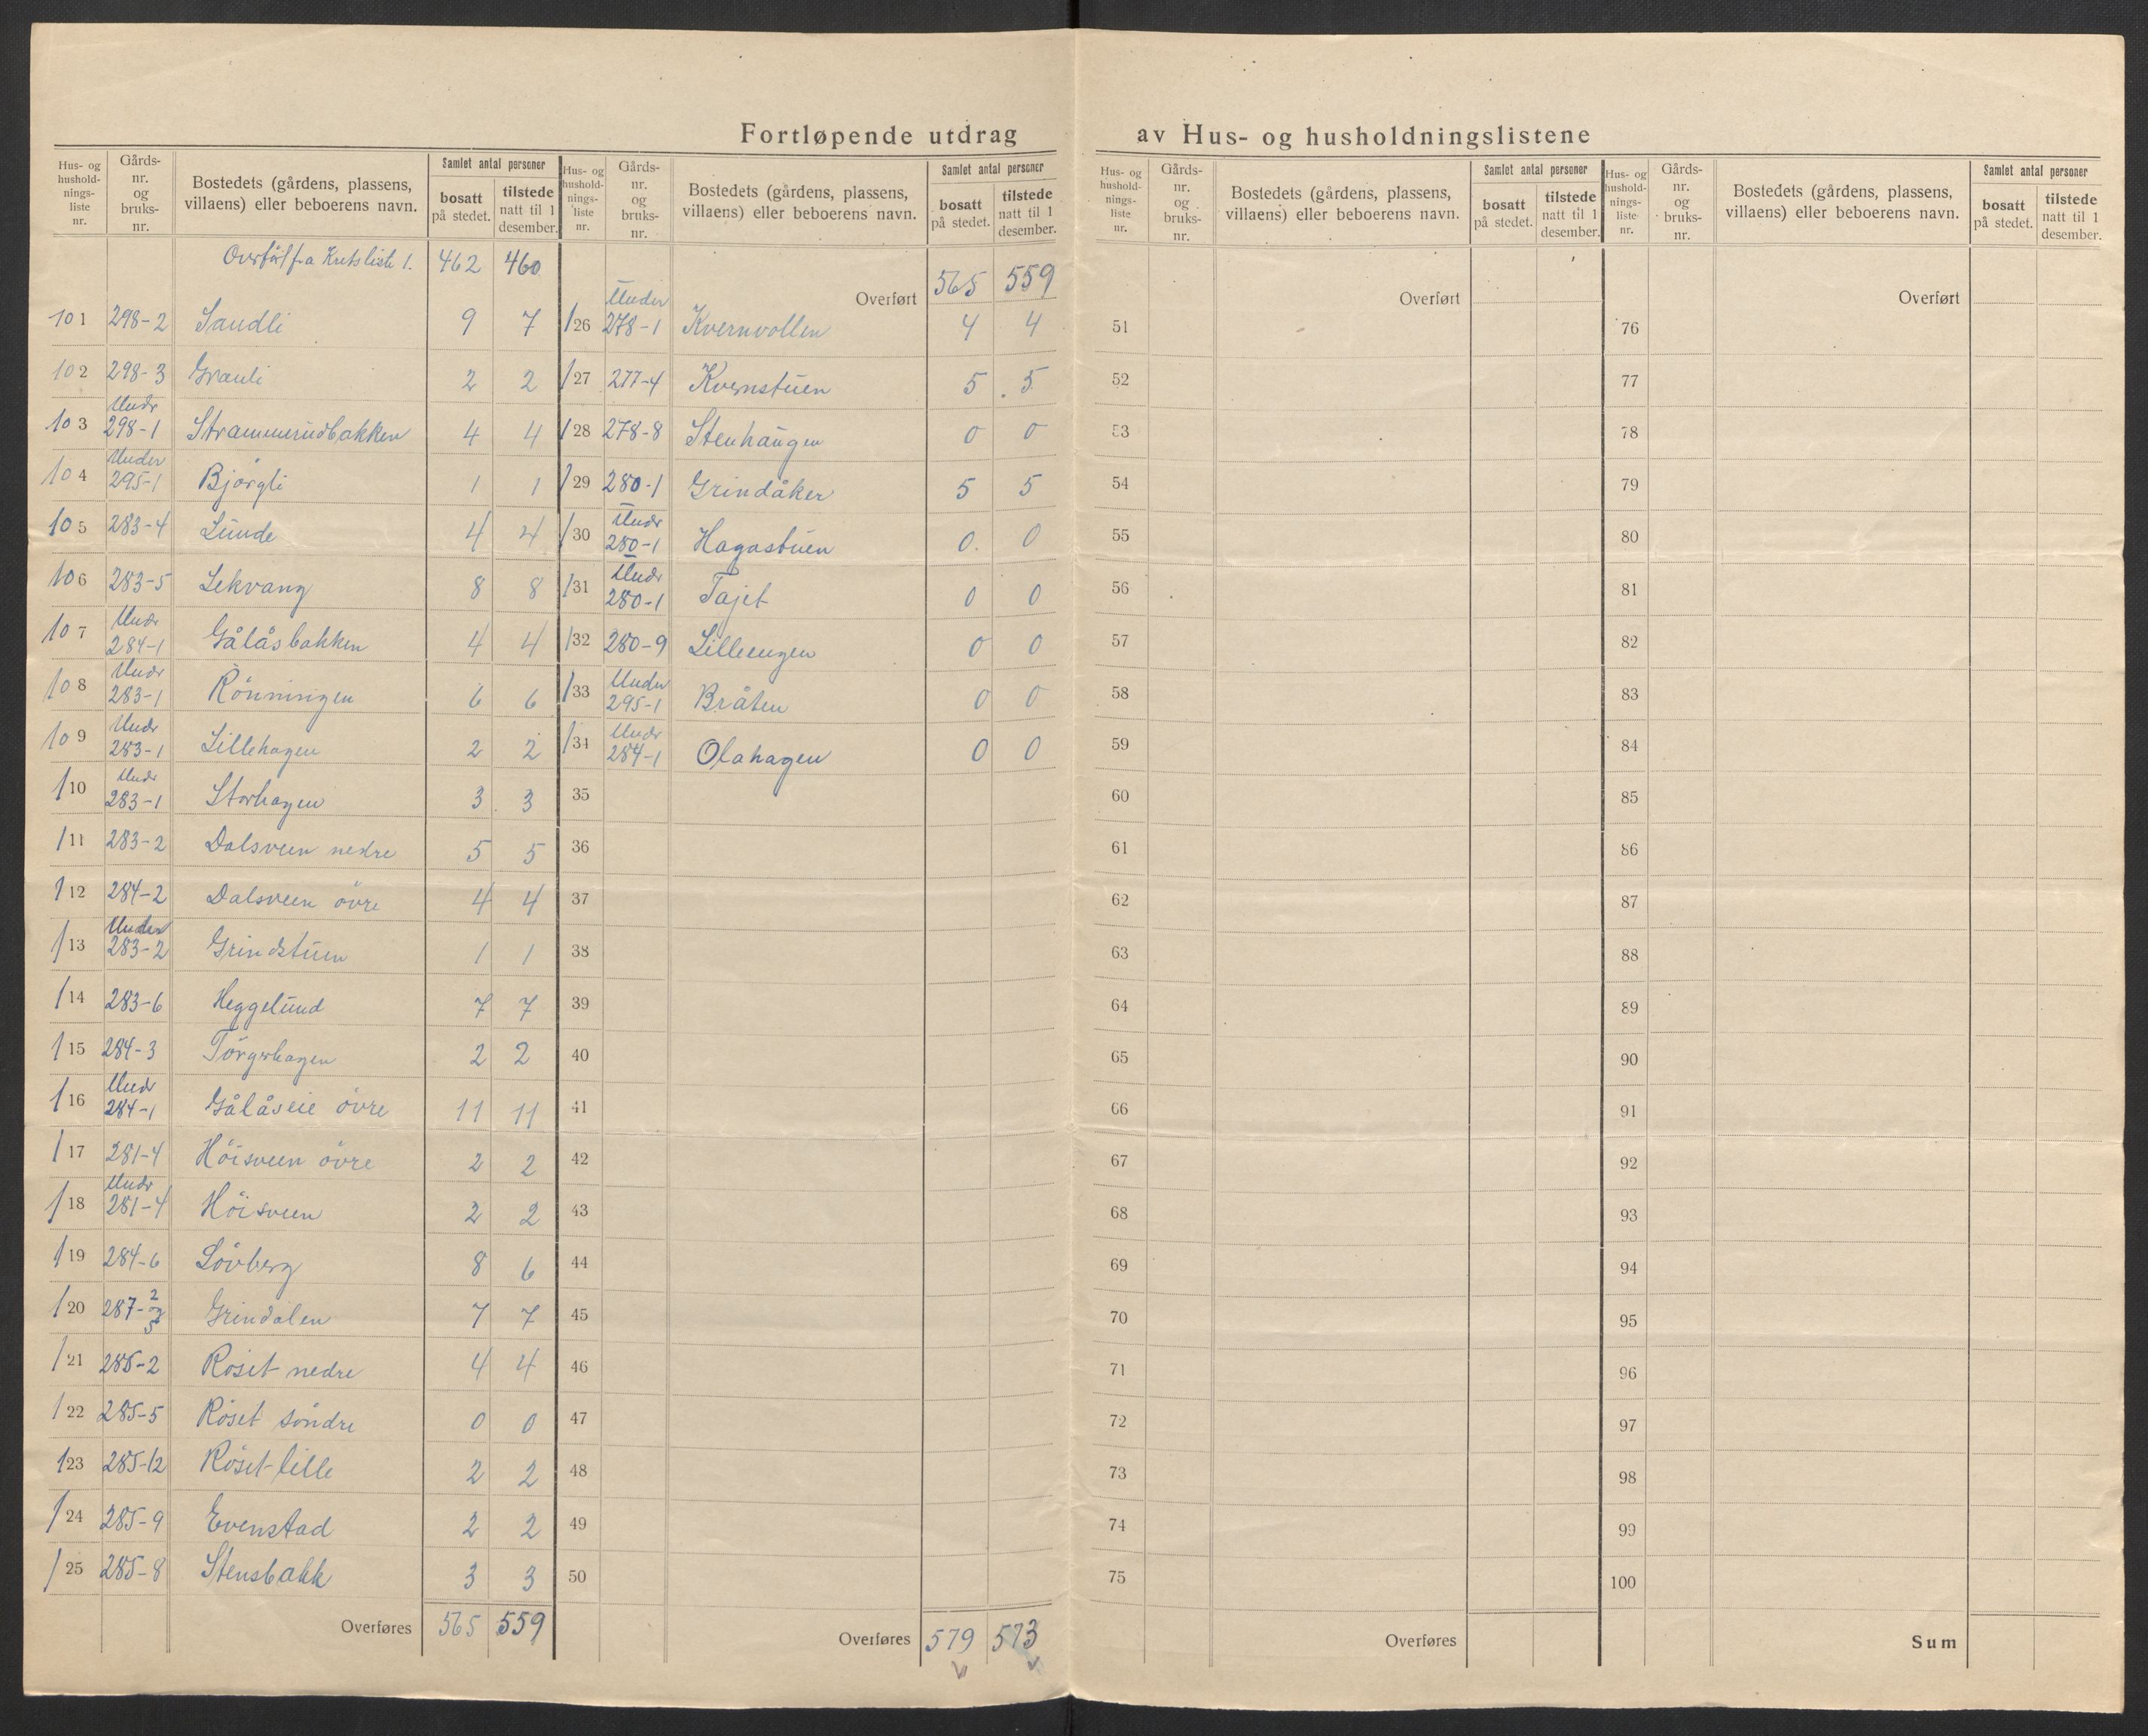 Fortløpende utdrag av Hus- og husholdningslistene
Hus- og hushold- nings- liste nr.
Gårds- nr. og bruks- nr.
Bostedets (gårdens, plassens, villaens) eller beboerens navn.
Samlet antal personer
bosatt på stedet.
tilstede natt til 1 desember.
Overført fra Kretsliste 1. 462 460
101 298-2 Sandli 9 7
102 298-3 Granli 2 2
103 Under 298-1 Strammerudbakken 4 4
104 Under 295-1 Bjørgli 1 1
105 283-4 Lunde 4 4
106 283-5 Lekvang 8 8
107 Under 284-1 Gålåsbakken 4 4
108 Under 283-1 Rönningen 6 6
109 Under 283-1 Lillehagen 2 2
110 Under 283-1 Storhagen 3 3
111 283-2 Dalsveen nedre 5 5
112 284-2 Dalsveen övre 4 4
113 Under 283-2 Grindstuen 1 1
114 283-6 Heggelund 7 7
115 284-3 Törgerhagen 2 2
116 Under 284-1 Gålåseie övre 11 11
117 281-4 Höisveen övre 2 2
118 Under 281-4 Höisveen 2 2
119 284-6 Lövberg 8 6
120 287-2 og 3 Grindalen 7 7
121 285-2 Röset nedre 4 4
122 285-5 Röset söndre 0 0
123 285-12 Röset lille 2 2
124 285-9 Evenstad 2 2
125 285-8 Stensbakk 3 3
Overføres 565 559
Hus- og hushold- nings- liste nr.
Gårds- nr. og bruks- nr.
Bostedets (gårdens, plassens, villaens) eller beboerens navn.
Samlet antal personer
bosatt på stedet.
tilstede natt til 1 desember.
Overført 565 559
126 Under 278-1 Kvernvollen 4 4
127 277-4 Kvernstuen 5 5
128 278-8 Stenhaugen 0 0
129 280-1 Grindåker 5 5
130 Under 280-1 Hagastuen 0 0
131 Under 280-1 Tajet 0 0
132 280-9 Lilleengen 0 0
133 Under 295-1 Bråten 0 0
134 Under 284-1 Olahagen 0 0
35
36
37
38
39
40
41
42
43
44
45
46
47
48
49
50
Overføres 579 573
Hus- og hushold- nings- liste nr.
Gårds- nr. og bruks- nr.
Bostedets (gårdens, plassens, villaens) eller beboerens navn.
Samlet antal personer
bosatt på stedet.
tilstede natt til 1 desember.
Overført
51
52
53
54
55
56
57
58
59
60
61
62
63
64
65
66
67
68
69
70
71
72
73
74
75
Overføres
Hus- og hushold- nings- liste nr.
Gårds- nr. og bruks- nr.
Bostedets (gårdens, plassens, villaens) eller beboerens navn.
Samlet antal personer
bosatt på stedet.
tilstede natt til 1 desember.
Overført
76
77
78
79
80
81
82
83
84
85
86
87
88
89
90
91
92
93
94
95
96
97
98
99
100
Sum